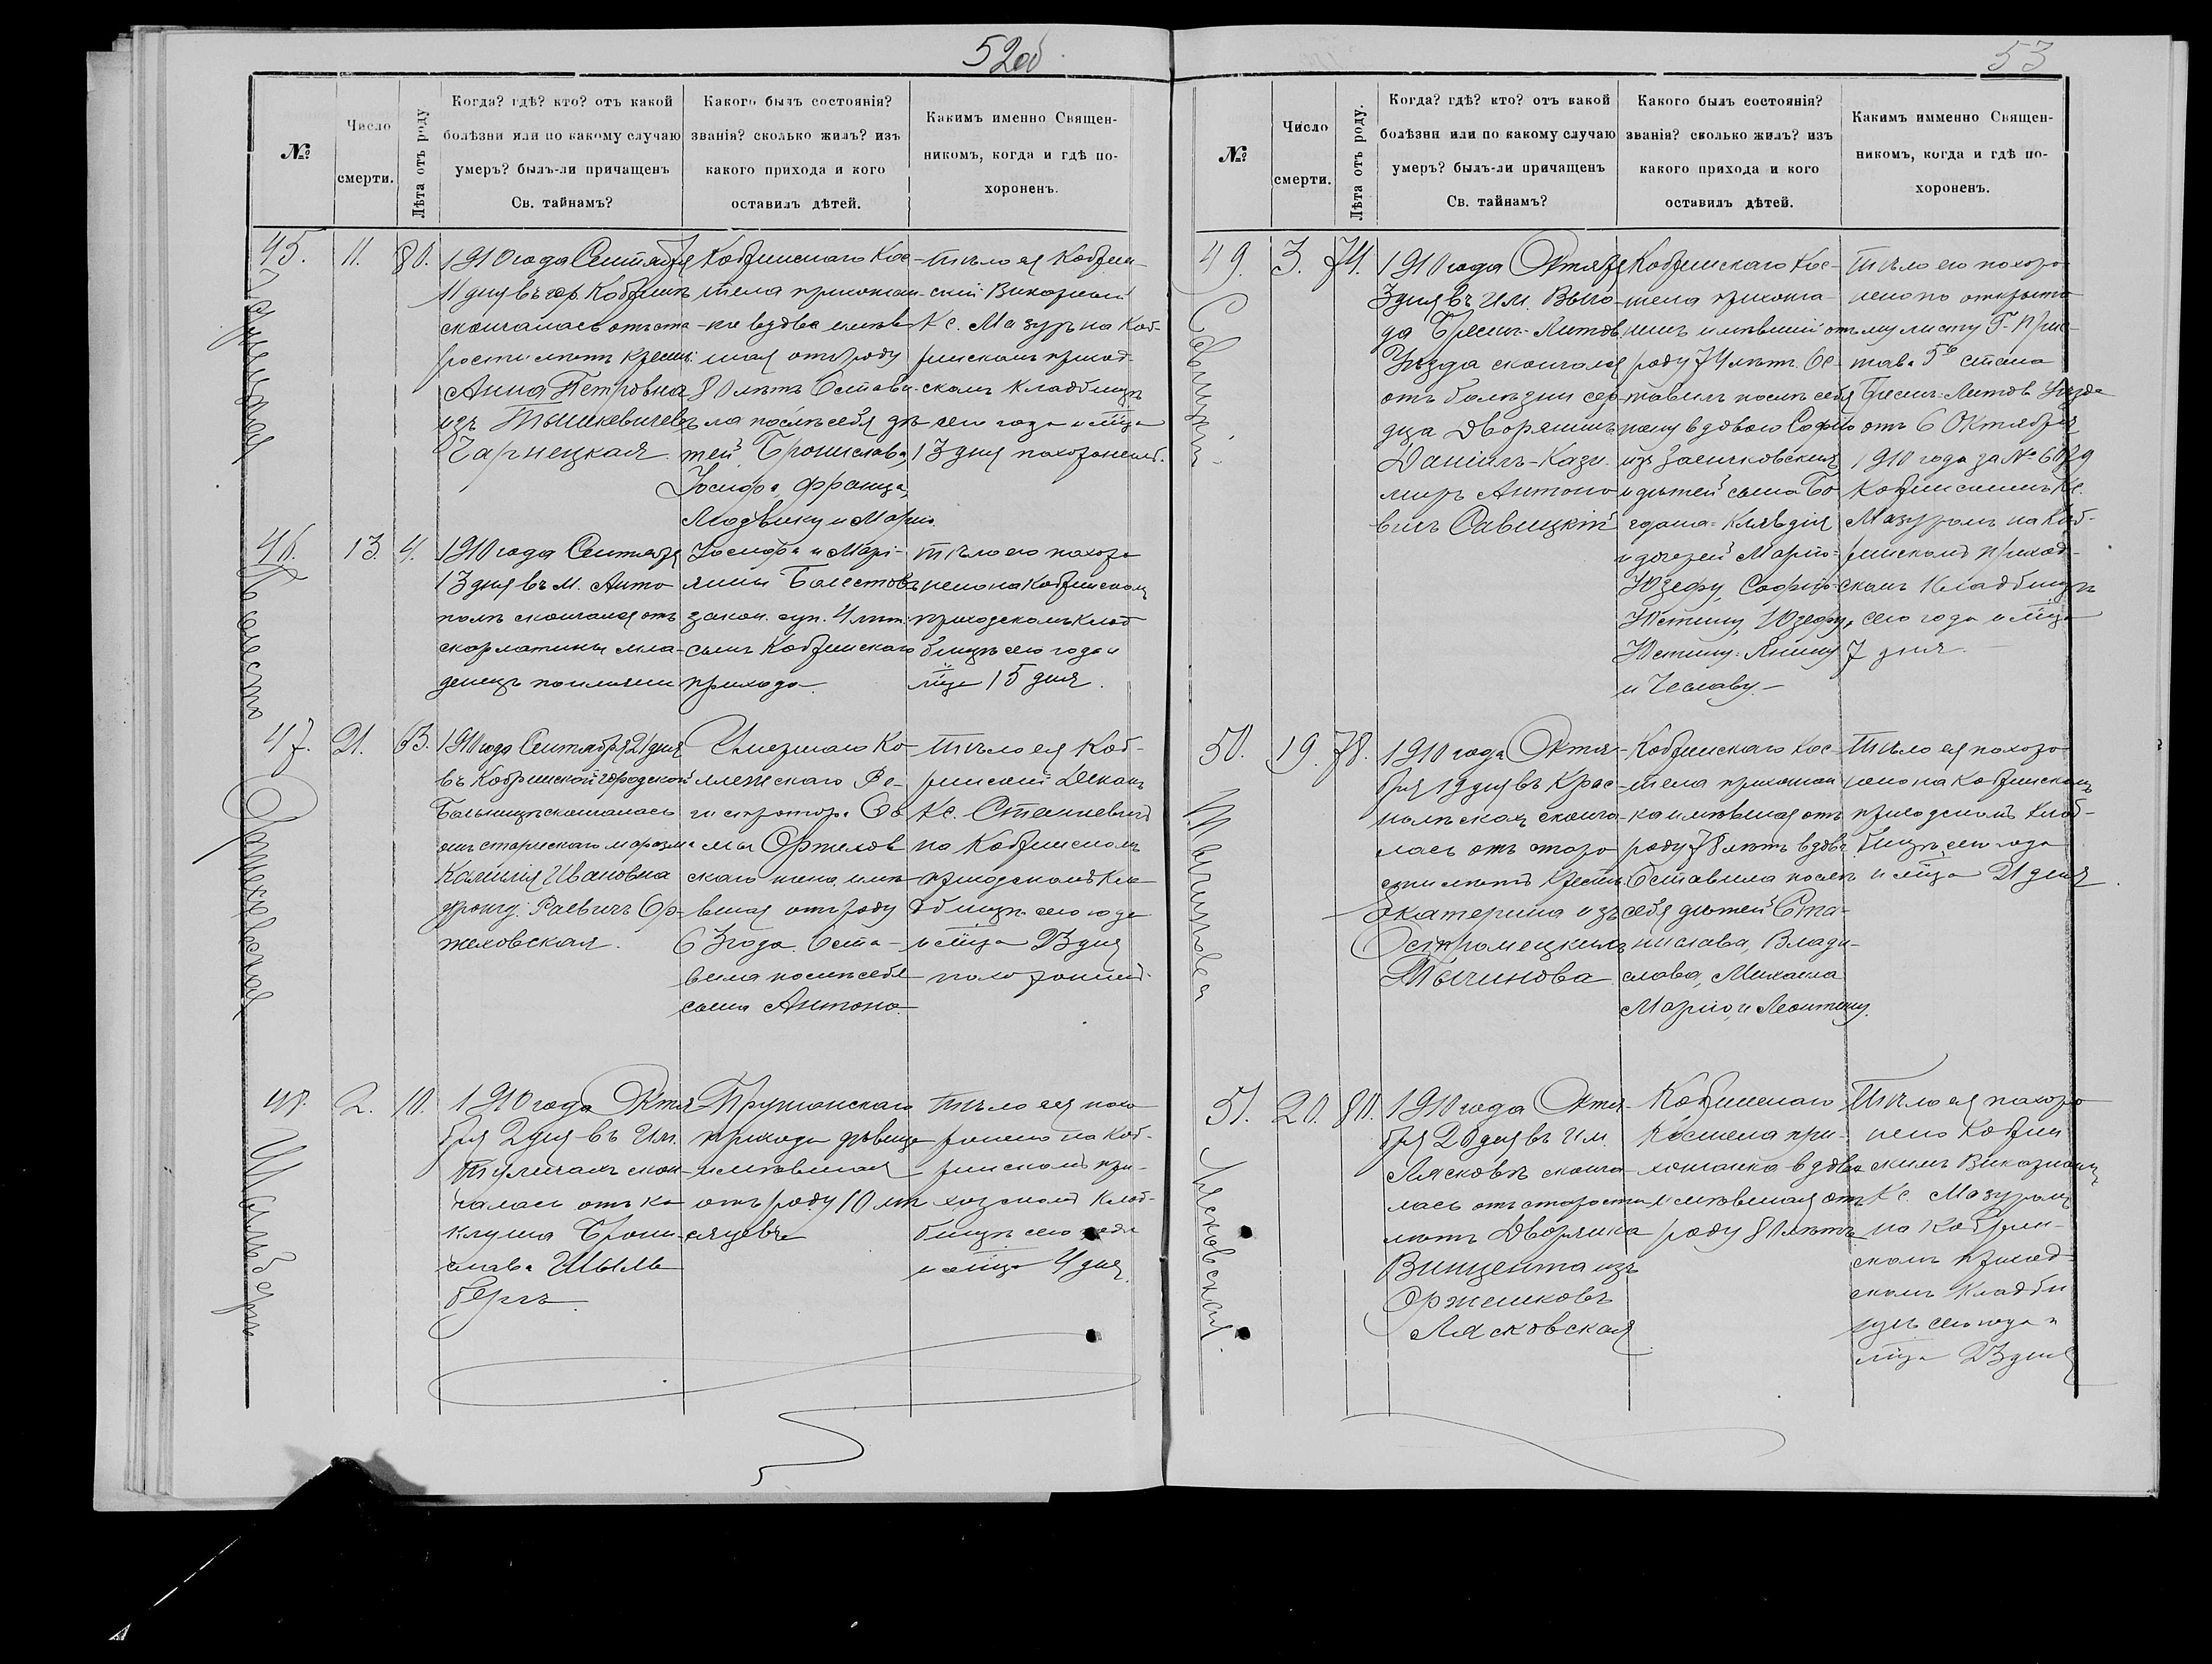 52об
№
Число
смерти.
Лѣта отъ роду
Когда? гдѣ? кто? отъ какой
болѣзни или по какому случаю
умеръ? былъ-ли причащенъ
Св. тайнамъ?
Какого былъ состоянія?
званія? сколько жилъ? изъ
какого прихода и кого
оставилъ дѣтей.
Какимъ именно Священ-
никомъ, когда и гдѣ по-
хороненъ.
45.
Чарнецкая
11.
80.
1910 года Сентября
11 дня въ гор. Кобринѣ
скончалась отъ ста
рости лѣтъ крестьн.
Анна Петровна
изъ Тышкевичевъ
Чарнецкая
Кобринскаго Кос-
тела прихожан-
ка вдова имѣв
шая отъ роду
80 лѣтъ Остави-
ла послѣ себя дѣ-
тей Бронислава,
Іосифа, Франца,
Людвику и Марію
Тѣло ея Кобрин-
скій Викарный
Кс. Мазуръ на Коб-
ринскомъ приход-
скомъ кладбищѣ
сего года и м̃ца
13 дня похоронилъ.
46.
13
4.
1910 года Сентября
13 дня въ М. Анто
полѣ скончался отъ
скарлатины мла-
денецъ
Іосифа и Марі-
анны
закон. суп. 4 лѣт.
сынъ Кобринскаго
прихода
Тѣло его похоро
нено на Кобринскомъ
приходскомъ клад
бищѣ сего года и
м̃ца 15 дня.
47.
Оржеховская
21.
63.
1910 года Сентября 21 дня
въ Кобринской городской
Больницѣ скончалась
отъ старческаго маразма
Камилія Ивановна
Раевичъ Ор-
жеховская.
Ко-
ллежскаго Ре-
гистратора
мы Оржехов
скаго жена имѣ-
вшая отъ роду
63 года. Оста-
вила послѣ себя
сына Антона.
Тѣло ея Коб-
ринскій Деканъ
Кс. Станкевичъ
на Кобринскомъ
приходскомъ кла
дбищѣ сего года
и м̃ца 23 дня
похоронилъ.
48.
Шильбергъ
2.
10.
1910 года Октя
бря 2 дня въ Им.
Туличахъ скон
чалась отъ ко
клуша Брони-
слава Шиль
бергъ
Пружанскаго
прихода дѣвица
имѣвшая
отъ роду 10 мѣ
сяцевъ
Тѣло ея похо
ронено на Коб-
ринскомъ при-
ходскомъ клад-
бищѣ сего года
и м̃ца 4 дня.
53
№
Число
смерти.
Лѣта отъ роду.
Когда? гдѣ? кто? отъ какой
болѣзни или по какому случаю
умеръ? былъ-ли причащенъ
Св. тайнамъ?
Какого былъ состоянія?
званія? сколько жилъ? изъ
какого прихода и кого
оставилъ дѣтей.
Какимъ имменно Священ-
никомъ, когда и гдѣ по-
хороненъ.
49.
Савицкій
3.
74.
1910 года Октября
3 дня въ им. Выго-
да Брестъ-Литов
Уѣзда скончался
отъ болѣзни сер-
дца Дворянинъ
Даніилъ-Кази
миръ Антоно
вичъ Савицкій
Кобринскаго Кос-
тела прихожа-
нинъ имѣвшій отъ
роду 74 лѣтъ. Ос-
тавилъ послѣ себя
жену вдовою Софію
изъ Заенчковскихъ
и дѣтей сына Бо
гдана-Клавдія
и дочерей Марію-
Юзефу, Софію-
Юстину, Юзефу,
Юстину-Янину
и Чеславу.
Тѣло его похоро
нено по открыто
му листу Г. При-
става 5го стана
Брестъ-Литов. Уѣзда
отъ 6 Октября
1910 года за № 6029
Кобринскимъ Кс.
Мазуромъ на Коб-
ринскомъ приход-
скомъ кладбищѣ
сего года и м̃ца
7 дня.
50.
Тычинова
19.
78.
1910 года Октя-
бря 19 дня въ Крас-
скахъ сконча-
лась отъ старо
сти лѣтъ Крестьн.
Екатерина изъ
Остромецкихъ
Тычинова
Кобринскаго Кос-
тела прихожан
ка имѣвшая отъ
роду 78 лѣтъ вдова
Оставила послѣ
себя дѣтей Ста-
нислава, Влади-
слава, Михаила
Марію и Леонтину.
Тѣло ея похоро
нено на Кобринскомъ
приходскомъ клад-
бищѣ сего года
и м̃ца 21 дня
51.
Лясковская.
20.
80.
1910 года Октя-
бря 20 дня въ Им.
Лясковъ сконча-
лась отъ старости
лѣтъ Дворянка
Винцента изъ
Оржешковъ
Лясковская
Кобринскаго
Костела при-
хожанка вдова
имѣвшая отъ
роду 80 лѣтъ
Тѣло ея похоро
нено Кобрин
скимъ Викарнымъ
Кс. Мазуромъ
на Кобрин-
скомъ приход-
скомъ кладби
щѣ сего года и
м̃ца 23 дня